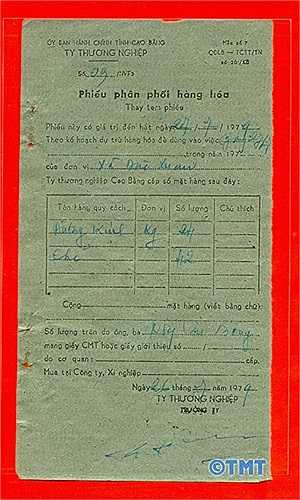 ỦY BAN HÀNH CHÍNH TỈNH CAO BẰNG
TY THƯƠNG NGHIỆP
Số 09 /NVPS
Mẫu số 7
QĐLB — TCTT/TN
số 20/KB
Phiếu phân phối hàng hóa
Thay tem phiếu
Phiếu này có giá trị đến hết ngày 27/ 7 /1979
Theo kế hoạch dự trù hàng hóa để dùng vào việc
trong năm 197
của đơn vị Xã Xuân
Ty thương nghiệp Cao Bằng cấp số mặt hàng sau đây:
Tên hàng quy cách Đơn vị Số lượng Chú thích
Đường Kính Kg 24
Chè 42
Cộng mặt hàng (viết bằng chữ)
Số lượng trên do ông, bà Bằng
mang giấy CMT hoặc giấy giới thiệu số /
do cơ quan: cấp.
Mua tại Công ty, Xí nghiệp
Ngày 26 tháng 2 năm 1979
TY THƯƠNG NGHIỆP
TRƯỞNG TY
©TMT